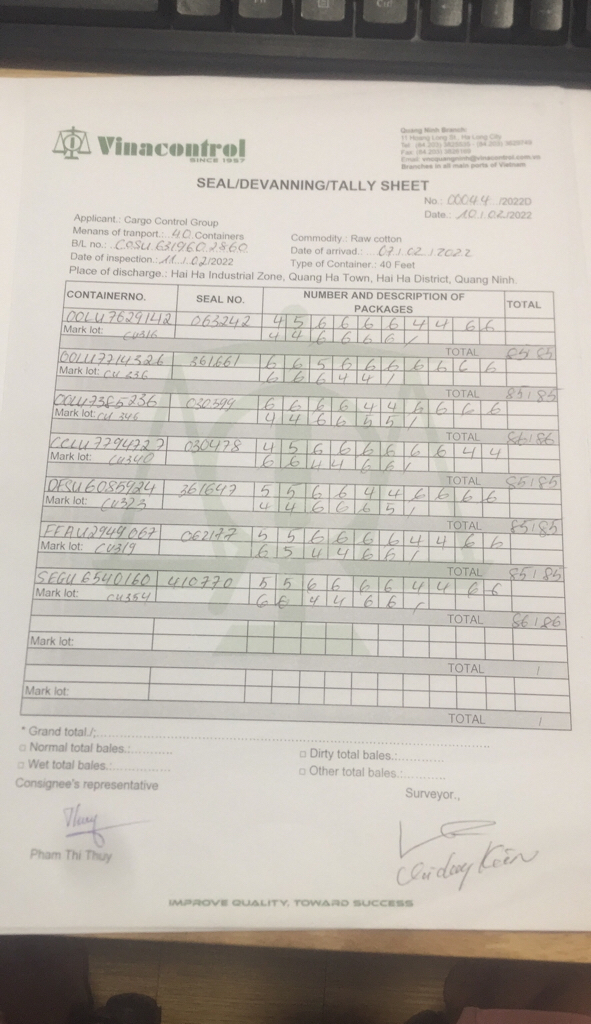 Vinacontrol
SINCE 1957
Quang Ninh Branch:
11 Hoang Long Str., Ha Long City
Branches in all main ports of Vietnam
SEAL/DEVANNING/TALLY SHEET
No.: 00044 /2022D
Date.: 10/02/2022
Applicant.: Cargo Control Group
Menans of tranport.: 40 Containers
Commodity.: Raw cotton
B/L no.: COSU 6319602860
Date of arrivad.: 07/02/2022
Date of inspection.: 11/02/2022
Type of Container.: 40 Feet
Place of discharge.: Hai Ha Industrial Zone, Quang Ha Town, Hai Ha District, Quang Ninh.
CONTAINERNO. SEAL NO. NUMBER AND DESCRIPTION OF PACKAGES TOTAL
OOLU7629142 063242 4 5 6 6 6 6 4 4 6 6
Mark lot: CU316 4 4 6 6 6 6 /
TOTAL 85/85
OOLU7214326 361661 6 6 5 6 6 6 6 6 6 6
Mark lot: CU 236 6 6 6 4 4 /
TOTAL 85/85
030599 6 6 6 6 4 4 6 6 6 6
Mark lot: CU 346 4 4 6 6 5 5 /
TOTAL 86/86
030478 4 5 6 6 6 6 6 6 4 4
Mark lot: CU340 6 6 4 4 6 6 /
TOTAL 85/85
361647 5 5 6 6 4 4 6 6 6 6
Mark lot: CU323 4 4 6 6 6 5 /
TOTAL 85/85
FFAU2949067 062177 5 5 6 6 6 6 4 4 6 6
Mark lot: CU319 6 5 4 4 6 6 /
TOTAL 85/85
SEGU 6540160 410770 5 5 6 6 6 6 4 4 6 6
Mark lot: CU354 6 6 4 4 6 6 /
TOTAL 86/86
Mark lot:
TOTAL /
Mark lot:
TOTAL /
* Grand total./:
□ Normal total bales.:
□ Dirty total bales.:
□ Wet total bales.:
□ Other total bales.:
Consignee's representative
Surveyor.,
Thuy
Pham Thi Thuy
IMPROVE QUALITY, TOWARD SUCCESS